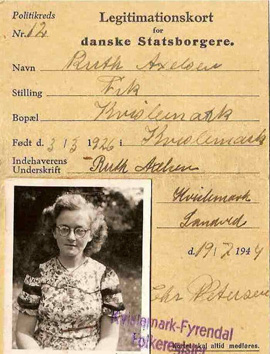 Politikreds
Nr. 12
Legitimationskort
for
danske Statsborgere.
Navn Ruth Axelsen
Stilling Frk
Bopæl Kvislemark
Født d. 3/3 1926 i Kvislemark
Indehaverens
Underskrift Ruth Axelsen
Kvislemark
d. 19/7 1944
Chr Petersen
Kvislemark-Fyrendal
Folkeregister
altid medføres.